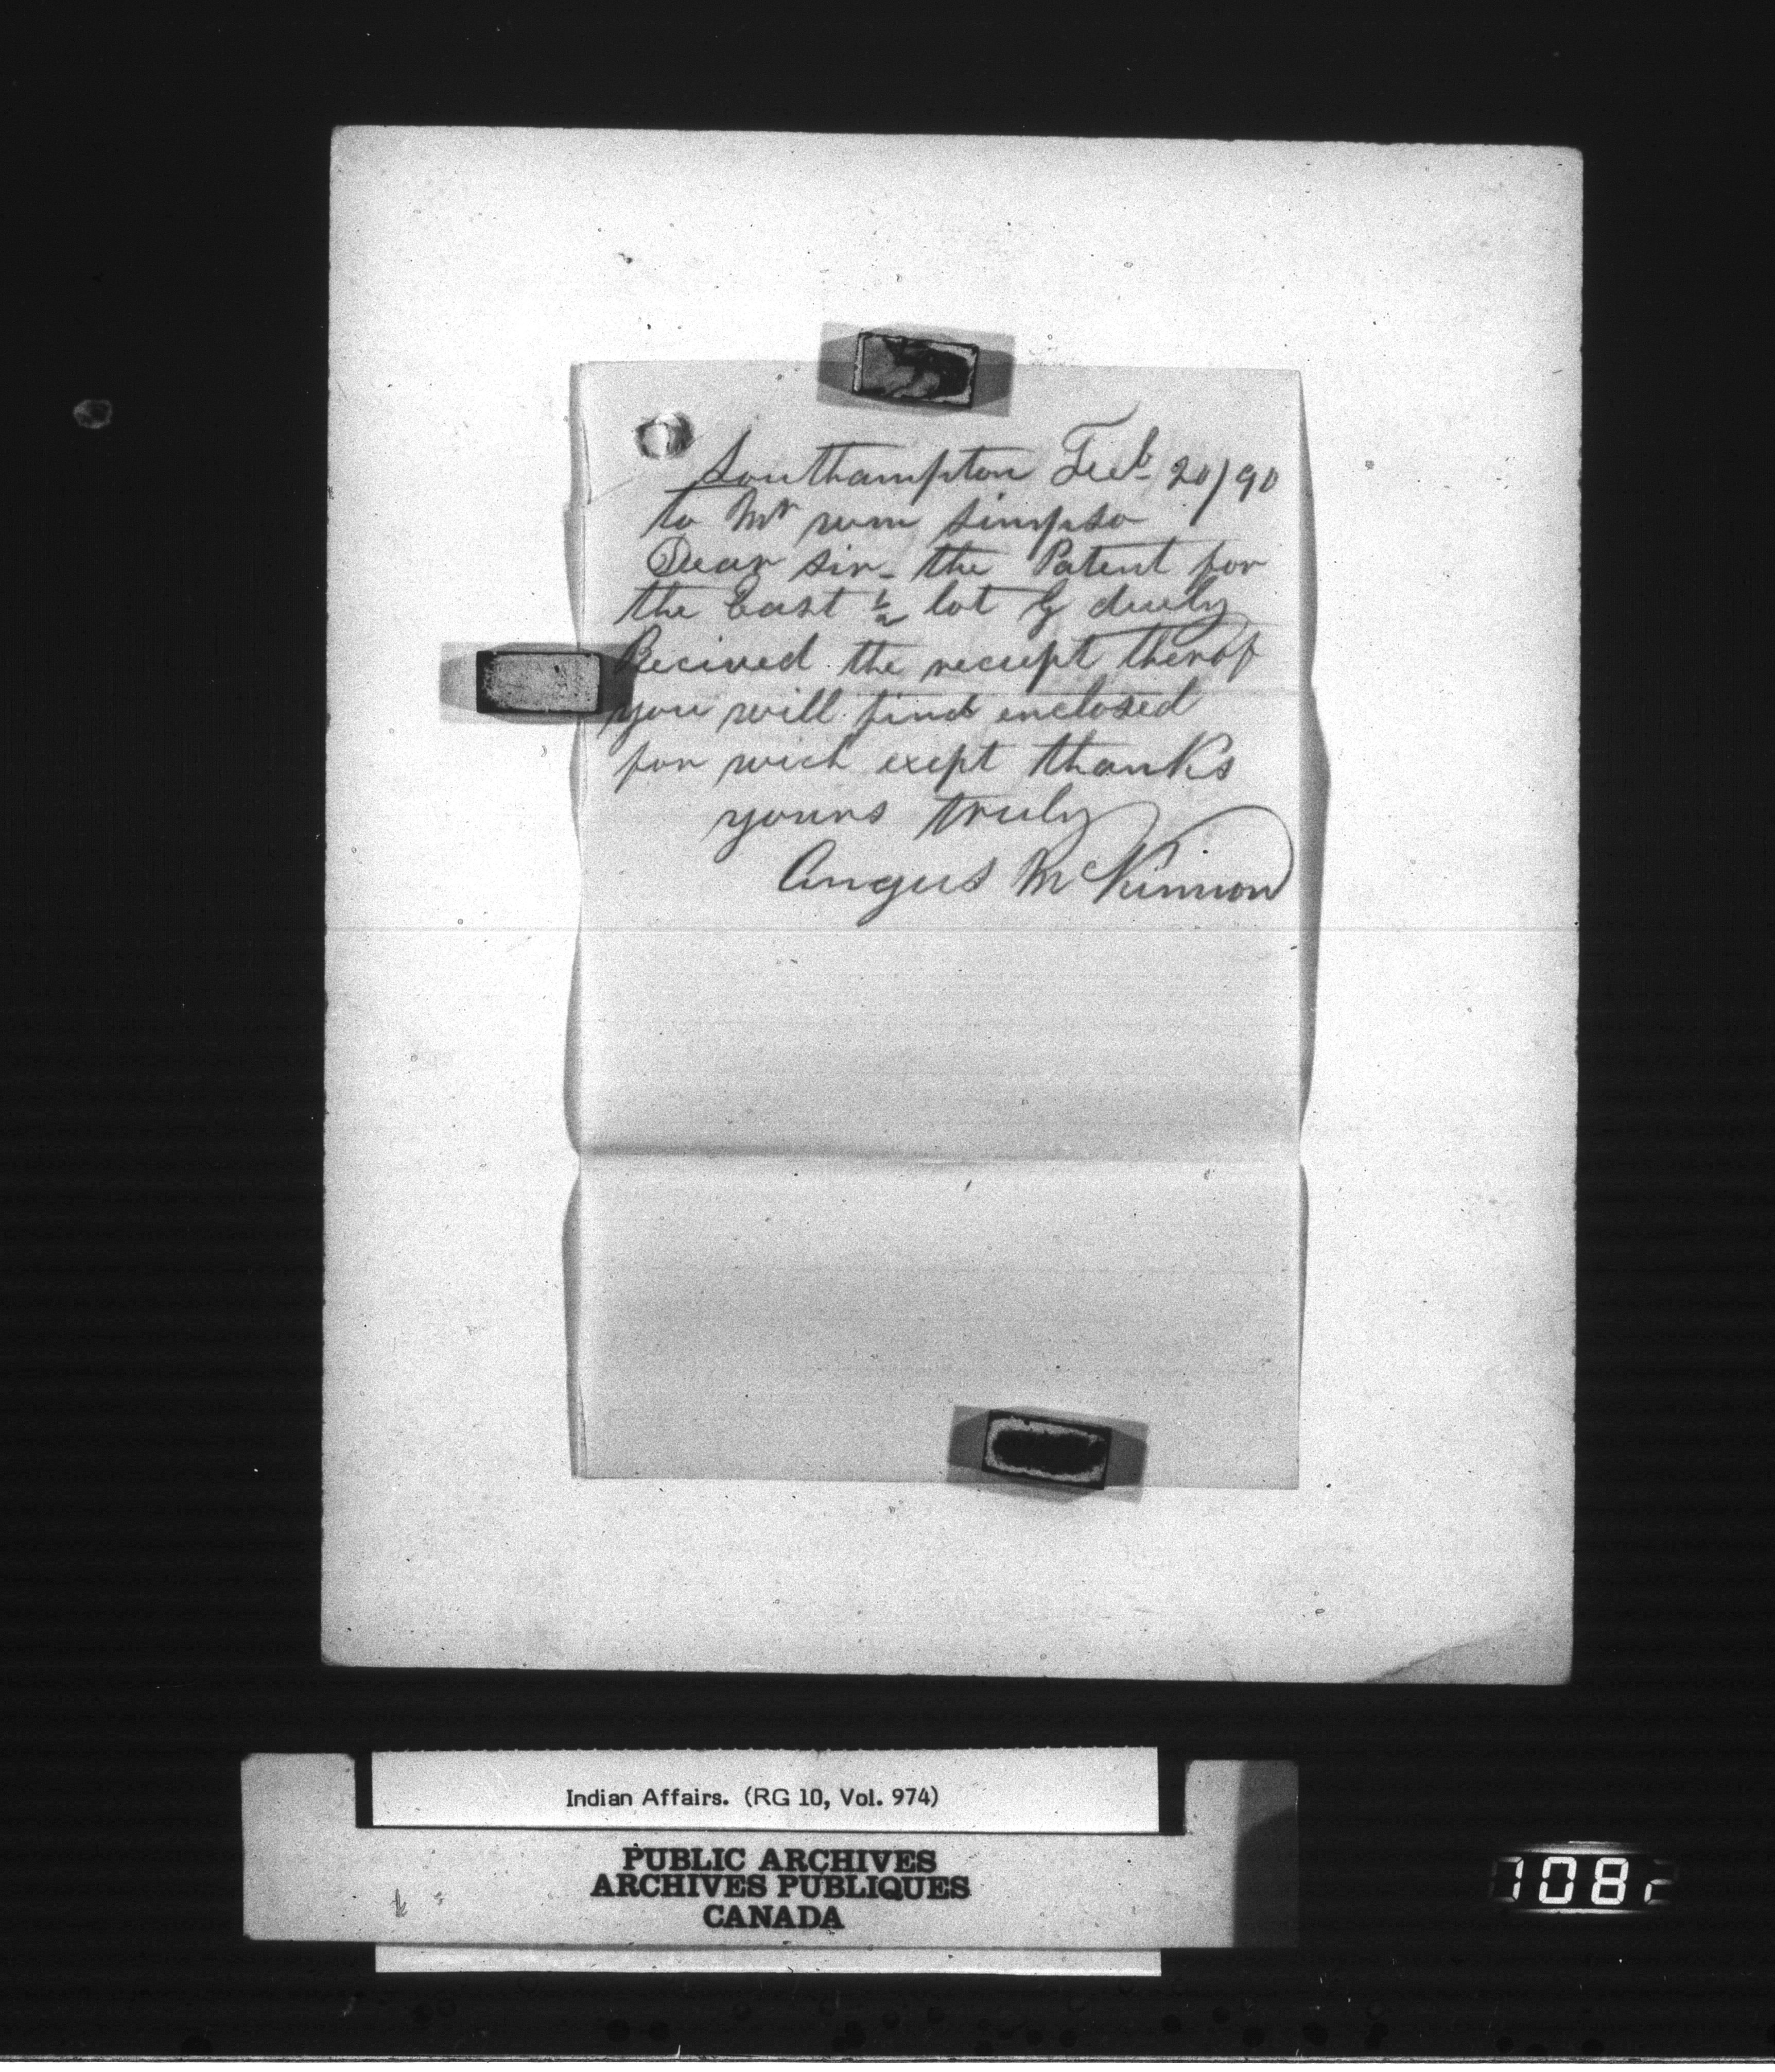 Southampton Feb 20/90
to Mr wm simpso
Dear sir - the Patent for
the East 1/2 lot G duely
Recived the reciept therof
you will find enclosed
for wich exept thanks
yours truly
Angus McKinnon
Indian Affairs. (RG 10, Vol. 974)
PUBLIC ARCHIVES
ARCHIVES PUBLIQUES
CANADA
1082